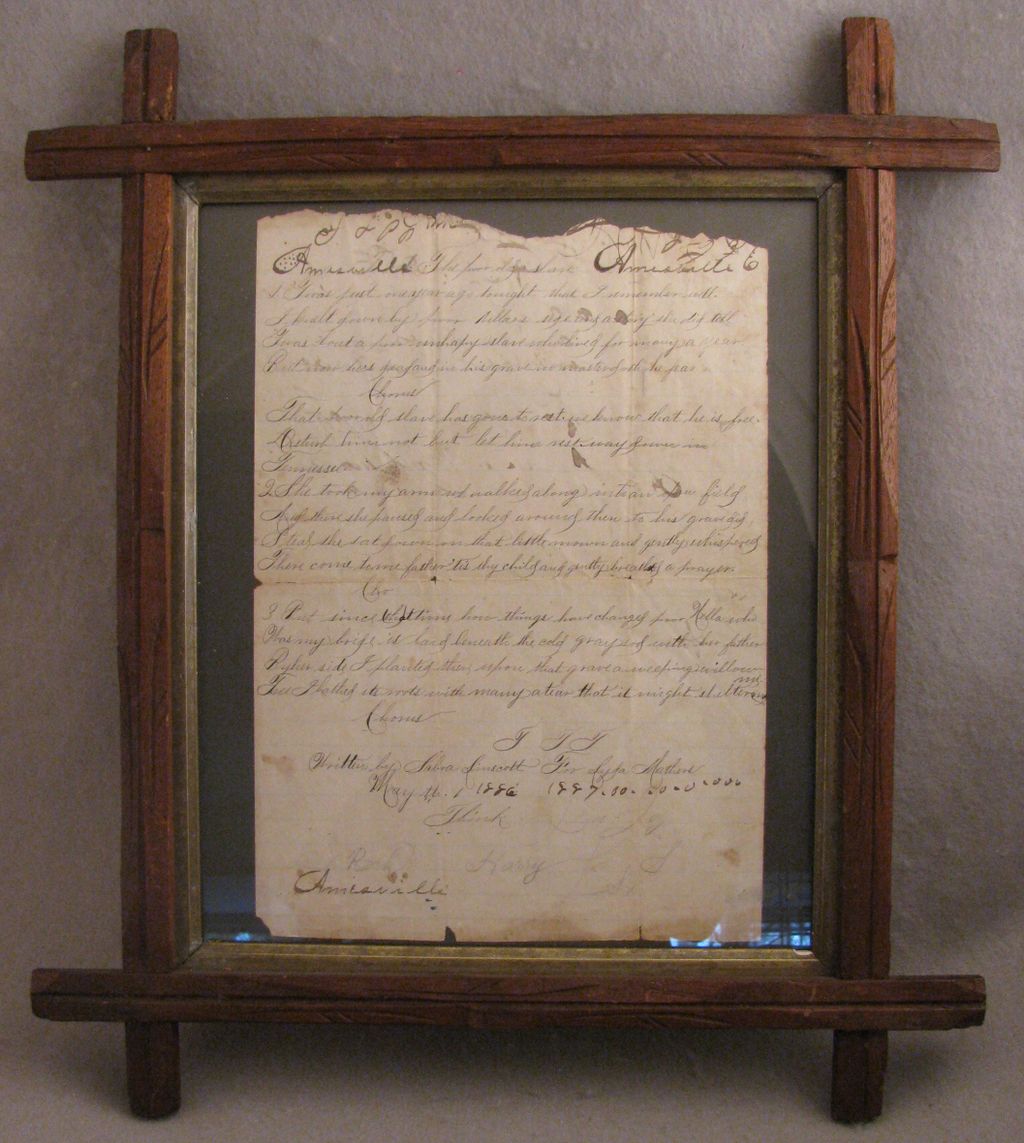 Amesville The poor old slave Amesville
1. Twas just one year ago tonight that I remember well.
I down by poor Nellies side and a story she did tell
Twas bout a poor unhapy slave who lived for many a year
But now hes and in his grave no master doth he fear
Chorus
That poor old slave has gone to rest we know that he is free.
Disturb him not but let him rest way down in
Tennessee
2. She took my arm we walked along into an field
And there she paused and looked around then to his grave did
Steal she sat down on that little mown and gently whispered
There come to me father tis thy child and gently breathed a prayer
Cho
3. But since that time how things have changed poor Nella who
Was my bride is laid beneath the cold gray sod with her father
By her side I planted there upon that grave a weeping willow
Tree I bathed its roots with many a tear that it might shelter me
Chorus
T T T
Written by Sabra Linscott For Mathers
May th. 1 1886 1887.00.
Think
Harry S
Amesville